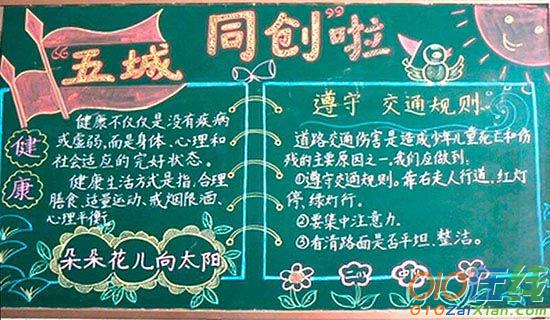 “五城同创”啦
健康
健康不仅仅是没有疾病
或虚弱,而是身体、心理和
社会适应的完好状态。
健康生活方式是指,合理
膳食、适量运动、戒烟限酒、
心理平衡
朵朵花儿向太阳
遵守 交通规则
道路交通伤害是造成少年儿童死亡和伤
残的主要原因之一,我们应做到:
①遵守交通规则。靠右走人行道,红灯
停,绿灯行。
②要集中注意力。
③看清路面是否平坦、整洁。
010在线
010zaixian.com